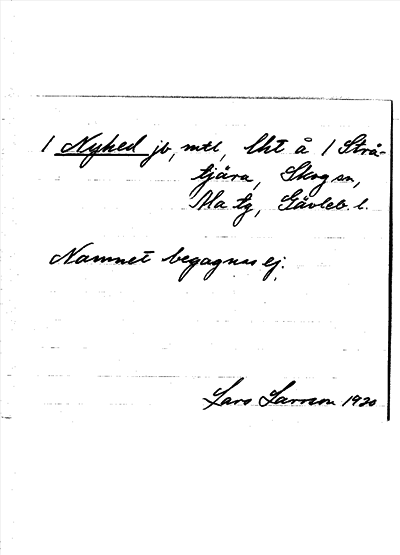 1 Nyhed jb, mtl, lht å 1 Strå-
tjära, Skog sn,
Ala tg, Gävleb. l.
Namnet begagnas ej.
Lars Larsson 1930